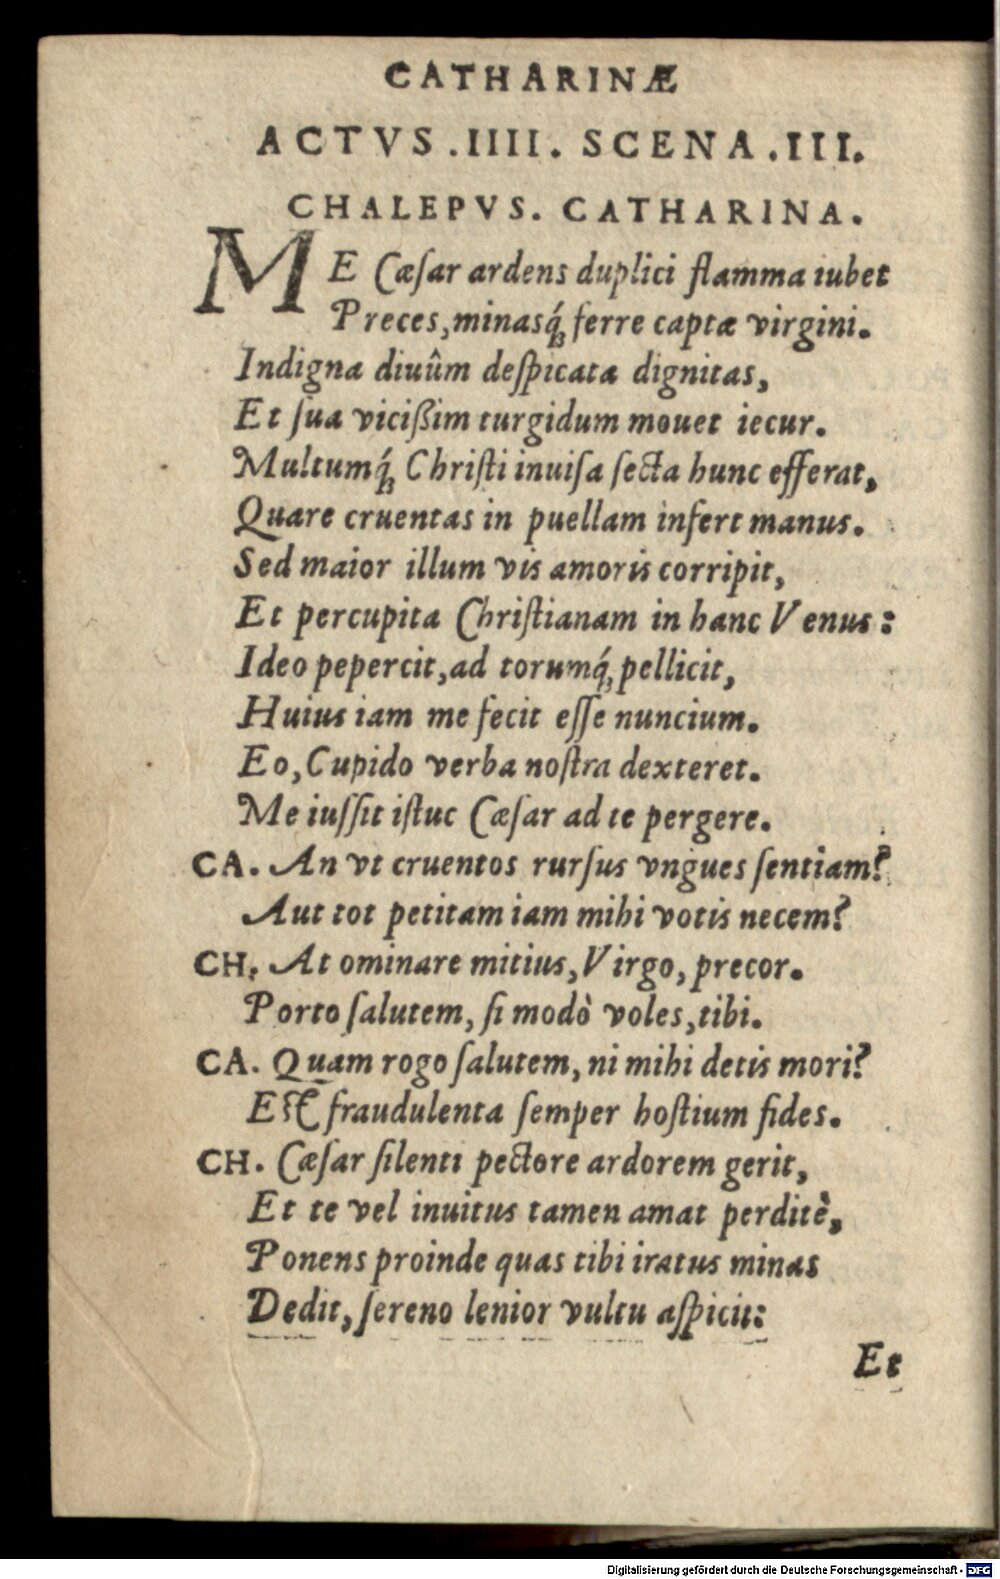 CATHARINÆ
ACTVS.IIII. SCENA.III.
CHALEPVS. CATHARINA.
ME Cæſar ardens duplici flamma iubet
Preces,minasq́ꝫ ferre captæ virgini.
Indigna diuûm deſpicata dignitas,
Et ſua vicißim turgidum mouet iecur.
Multumq́ꝫ Chriſti inuiſa ſecta hunc efferat,
Quare cruentas in puellam infert manus.
Sed maior illum vis amoris corripit,
Et percupita Chriſtianam in hanc Venus:
Ideo pepercit,ad torumq́ꝫ pellicit,
Huius iam me fecit eſſe nuncium.
Eo,Cupido verba noſtra dexteret.
Me iuſſit iſtuc Cæſar ad te pergere.
CA. An vt cruentos rurſus vngues ſentiam?
Aut tot petitam iam mihi votis necem?
CH. At ominare mitius,Virgo,precor.
Porto ſalutem, ſi modò voles,tibi.
CA. Quam rogo ſalutem, ni mihi detis mori?
Eſt fraudulenta ſemper hoſtium fides.
CH. Cæſar ſilenti pectore ardorem gerit,
Et te vel inuitus tamen amat perditè,
Ponens proinde quas tibi iratus minas
Dedit, ſereno lenior vultu aſpicit:
Et
Digitalisierung gefördert durch die Deutsche Forschungsgemeinschaft - DFG